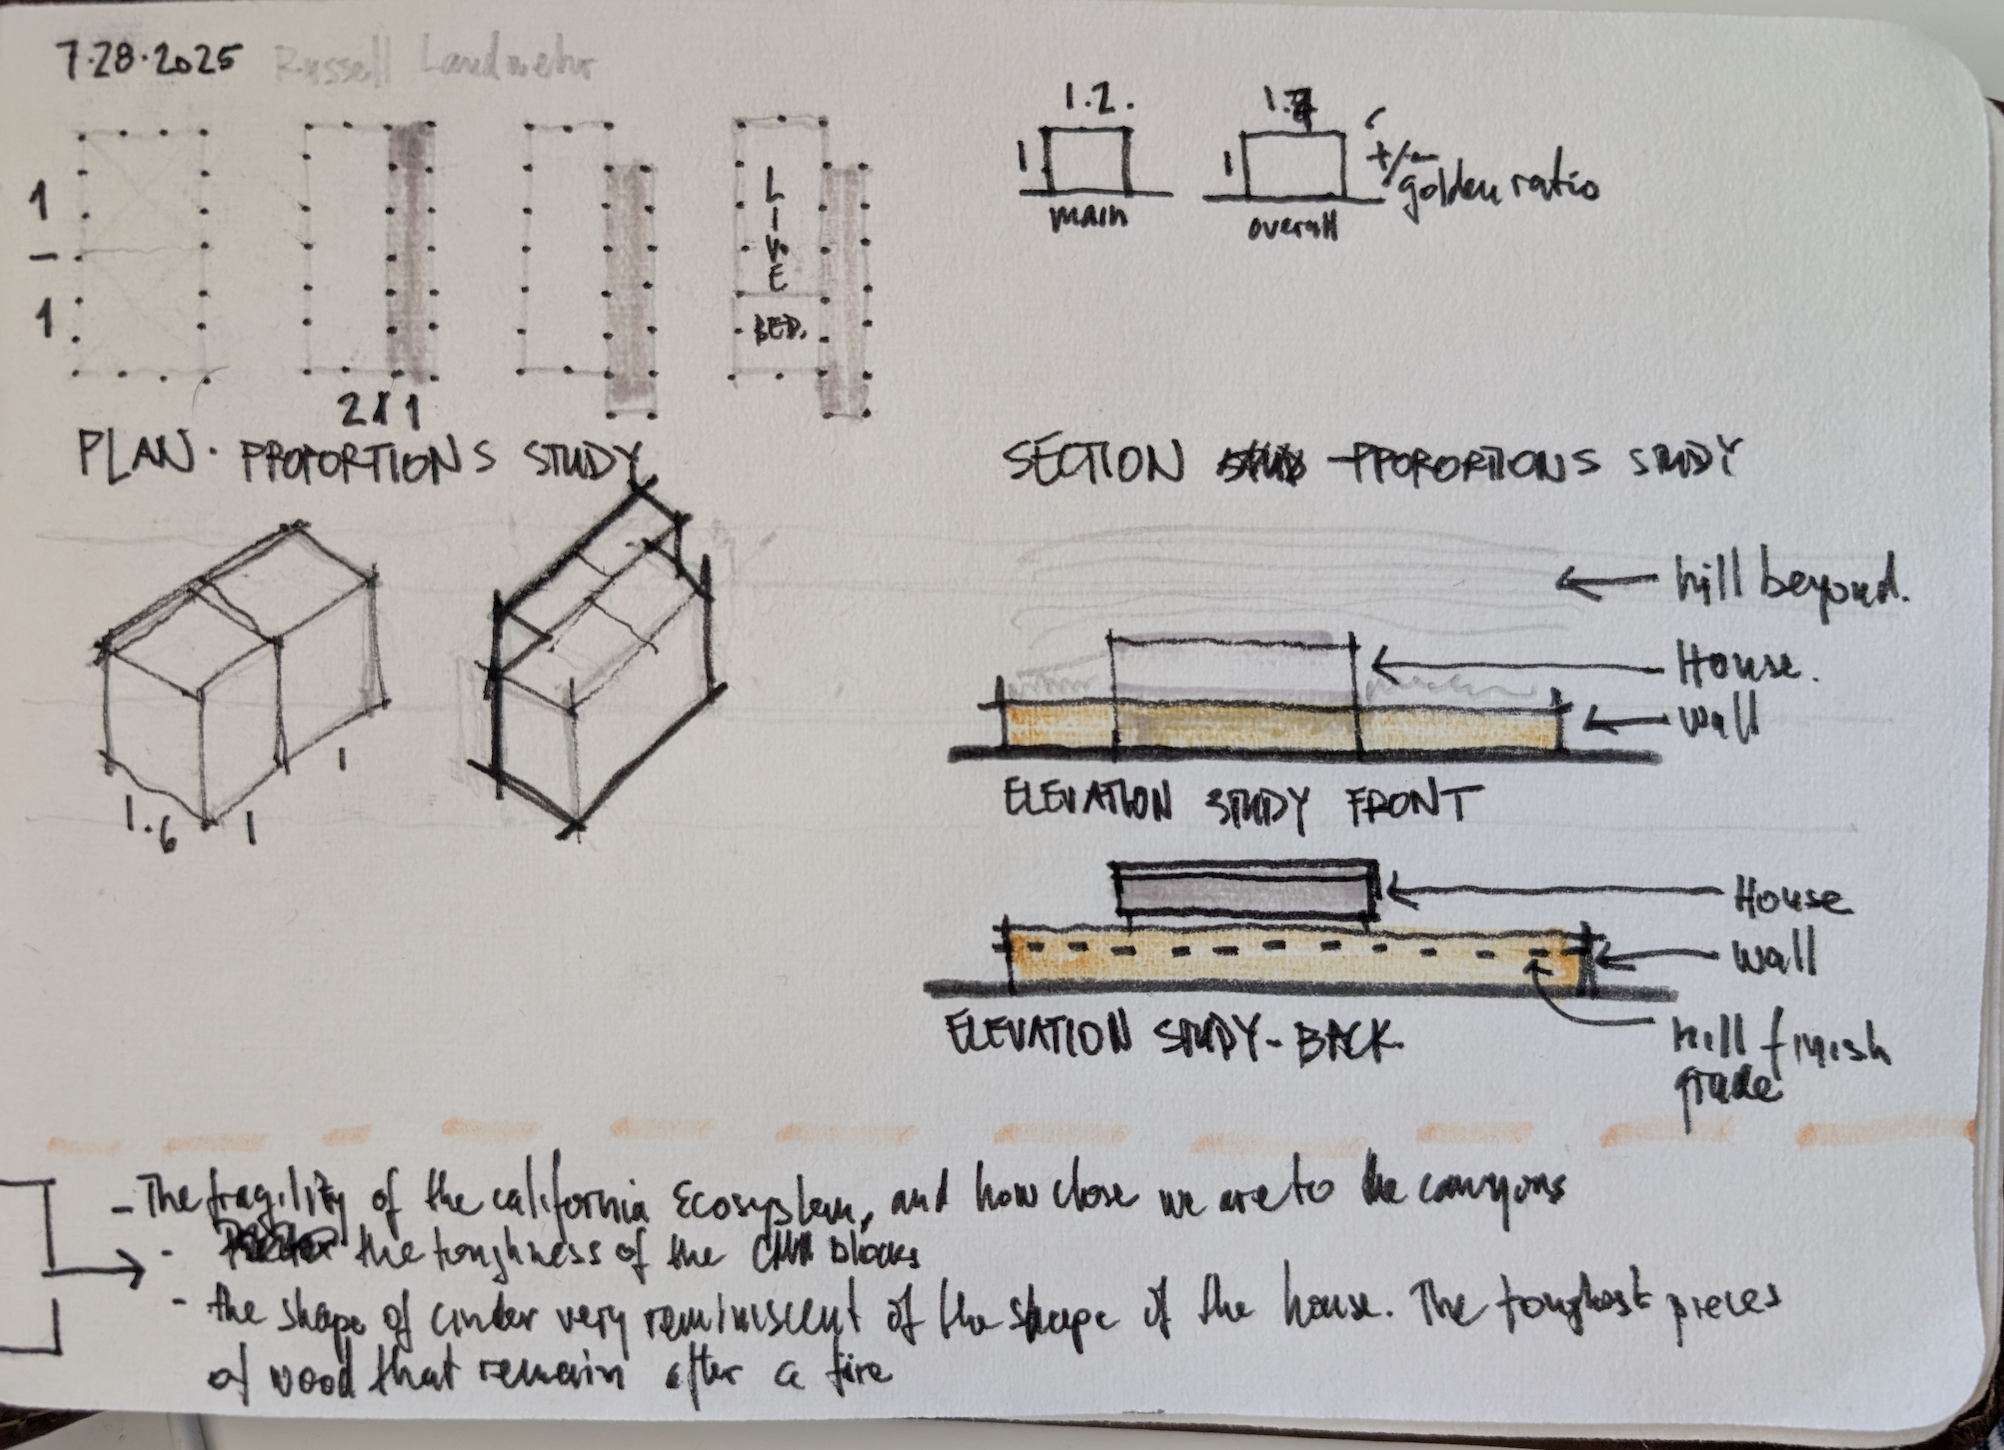 7.28.2025 Russell Landwehr
1
1
2 1
LIVE
BED.
PLAN. PROPORTIONS STUDY
1.2.
1
main
1
overall
+/-
golden ratio
SECTION - PROPORTIONS STUDY
1.6
1
1
hill beyond.
House.
Wall
ELEVATION STUDY FRONT
House
Wall
hill finish
grade
ELEVATION STUDY - BACK.
- The fragility of the california Ecosystem, and how close we are to the canyons
- the toughness of the CMU blocks
- the shape of cinder very reminiscent of the shape of the house. The toughest pieces
of wood that remain after a fire